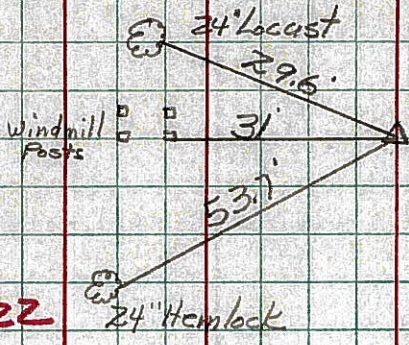 24" Locust
29.6'
windmill
Posts
31'
53.7'
22
24" Hemlock